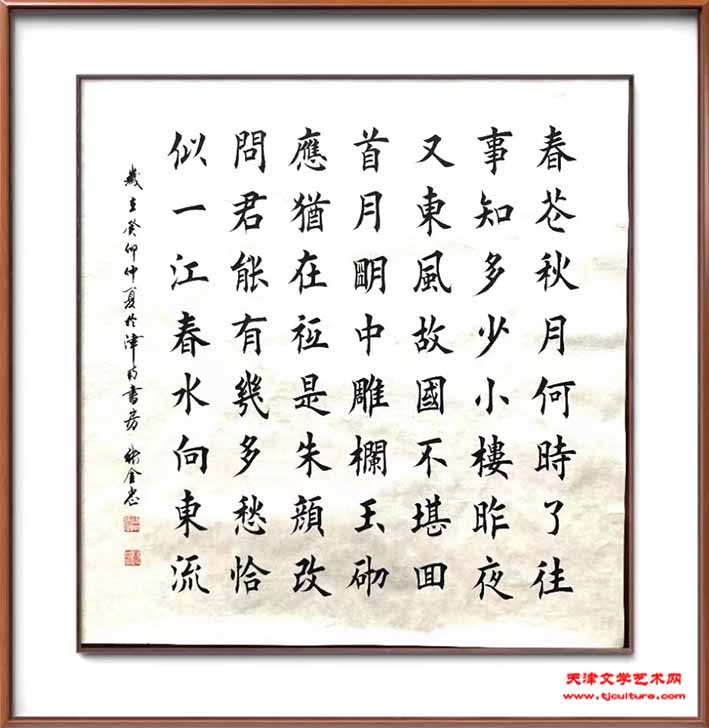 春花秋月何時了往
事知多少小樓昨夜
又東風故國不堪回
首月明中雕欄玉砌
應猶在祗是朱顔改
問君能有幾多愁恰
似一江春水向東流
歲在癸卯仲夏於津門書房 金忠
天津文学艺术网
www.tjculture.com